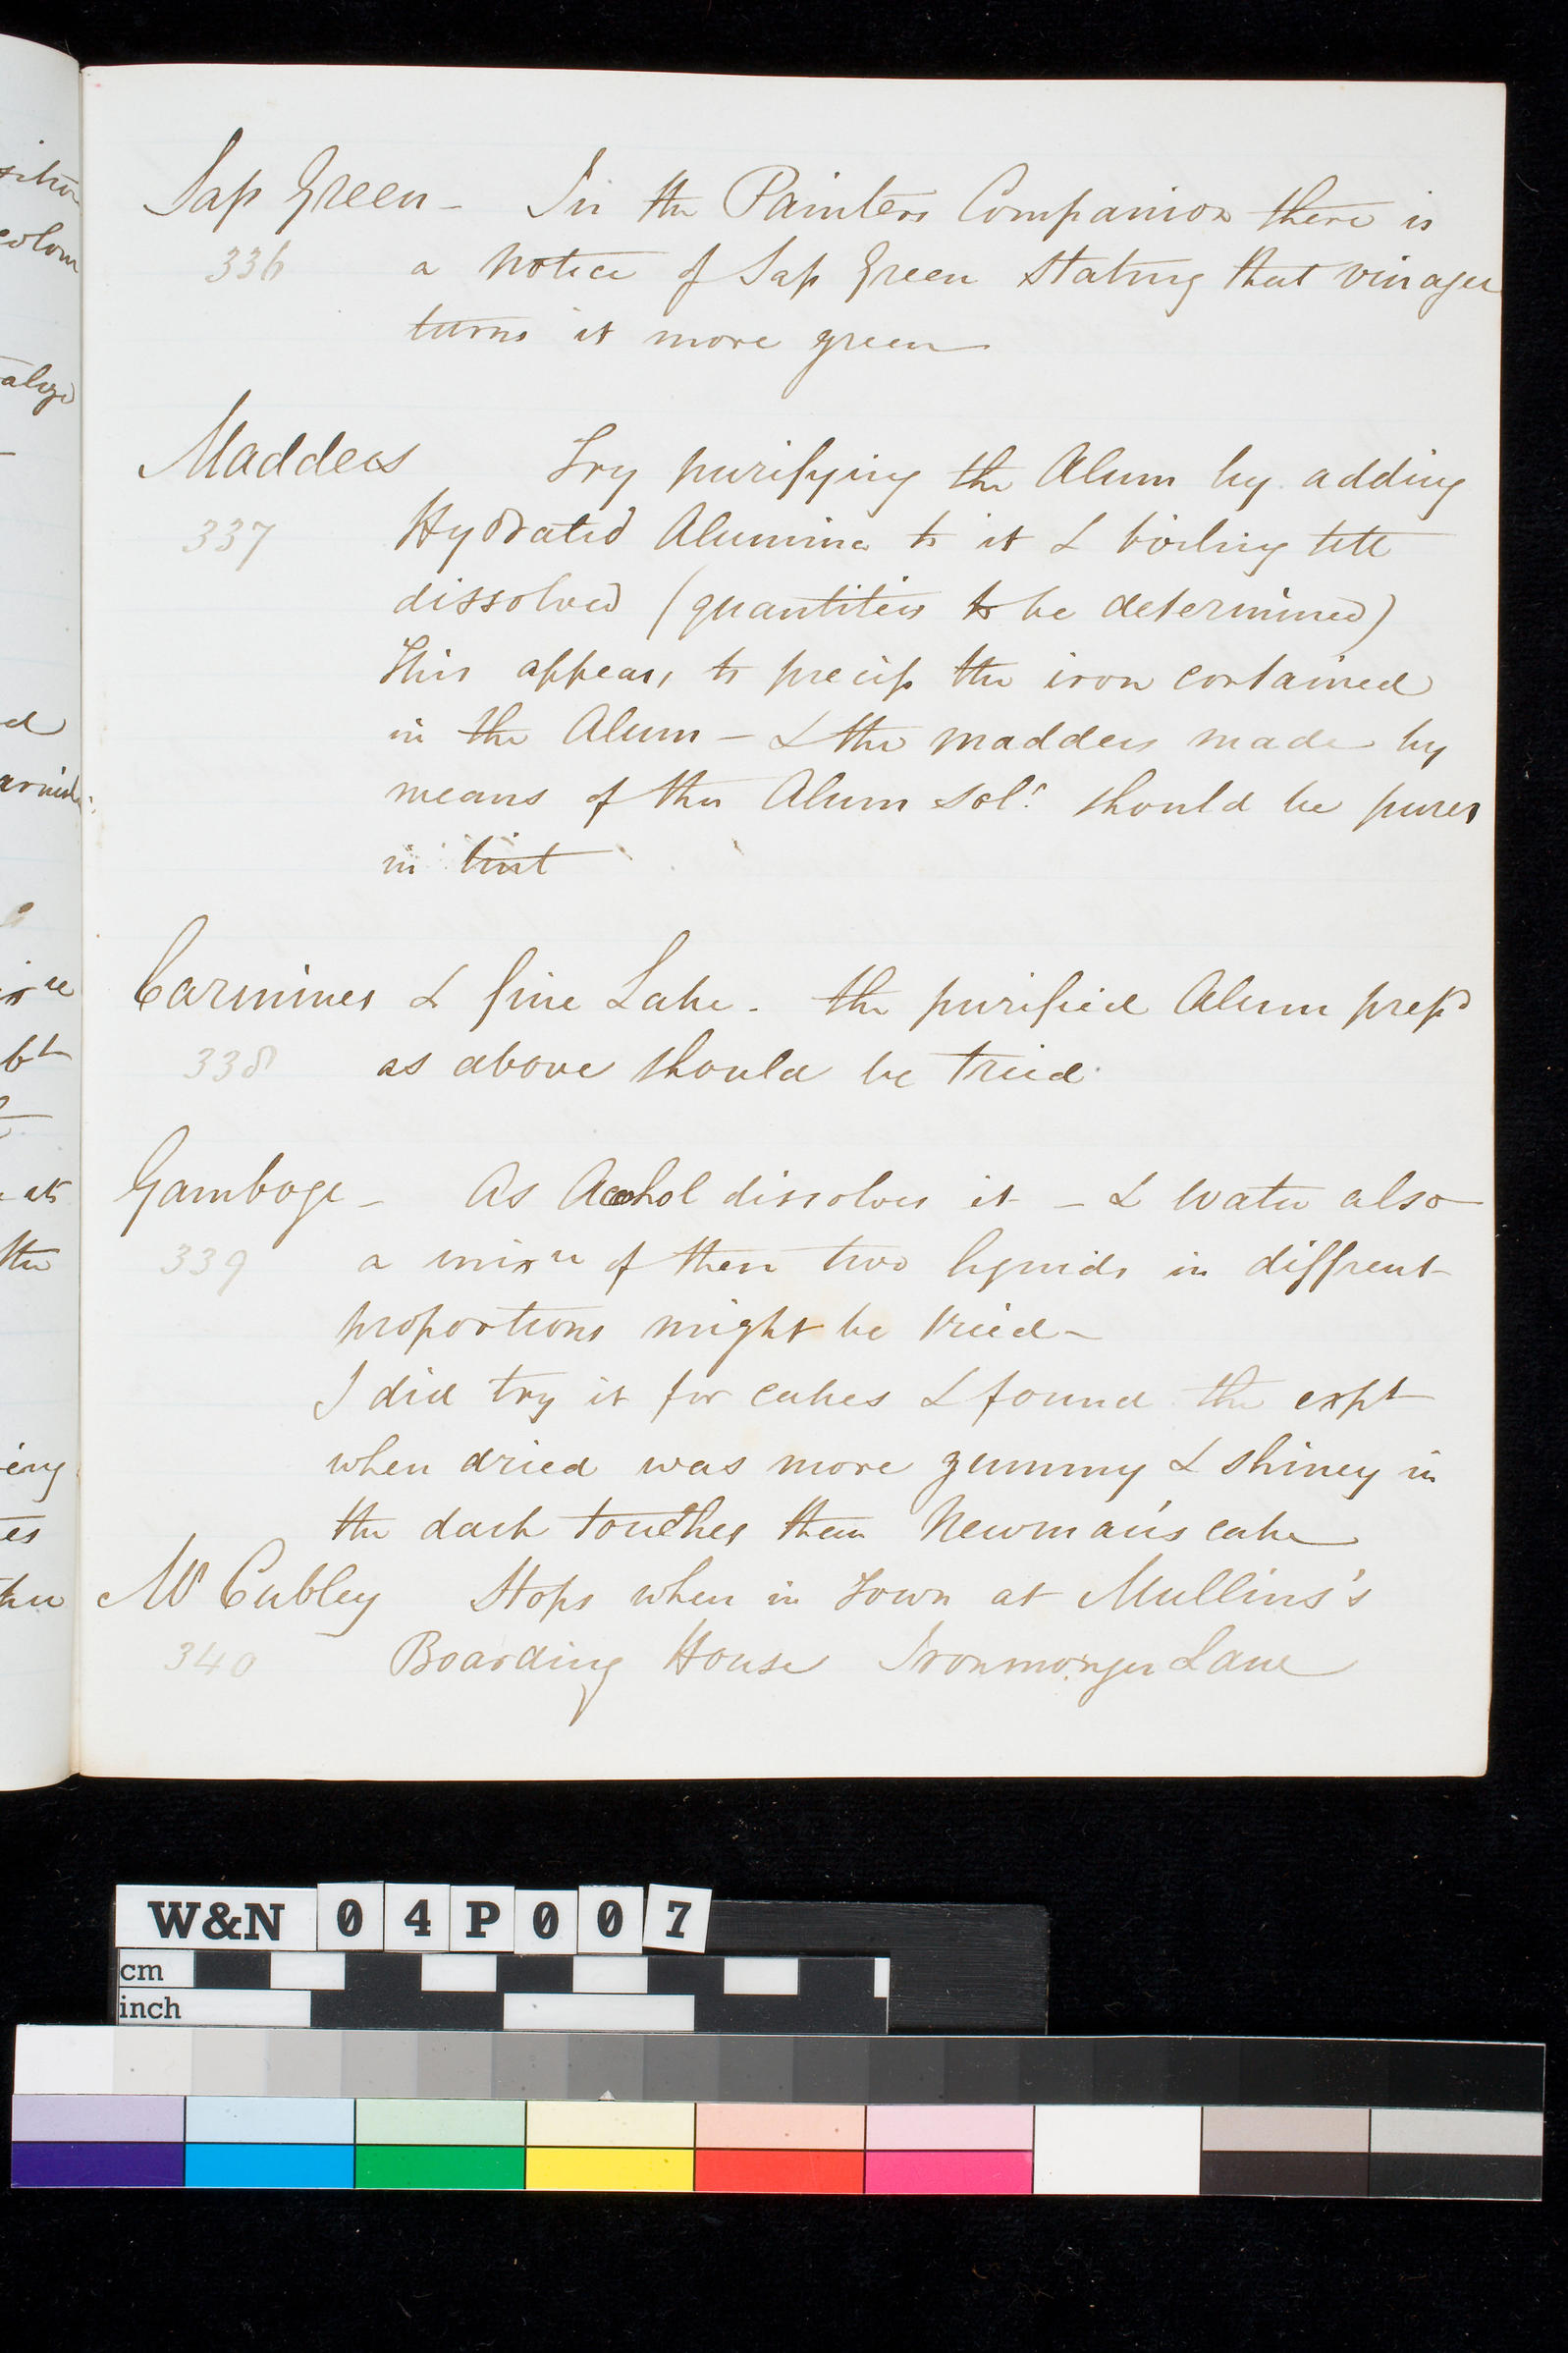 Sap Green – In the Painters Companion there is
336 a notice of Sap Green stating that vinager
turns it more green
Madders Try purifying the Alum by adding
337 Hydrated Alumina to it & boiling till
dissolved (quantities to be determined)
This appears to precip the iron contained
in the Alum – & the madders made by
means of this Alum soln should be purer
in tint
Carmines & fine Lake. the purified Alum prepd
338 as above should be tried
Gamboge – As Acohol dissolves it – & water also
339 a mixre of these two liquids in diffrent
proportions might be tried –
I did try it for cakes & found the expt
when dried was more gummy & shiney in
the dark touches than Newman's cake
Mr Cubley Stops when in Town at Mullins's
340 Boarding House Ironmonger Lane
sition
colour
d
bt
ats
the
ing
es
W&N 04P007
cm
inch